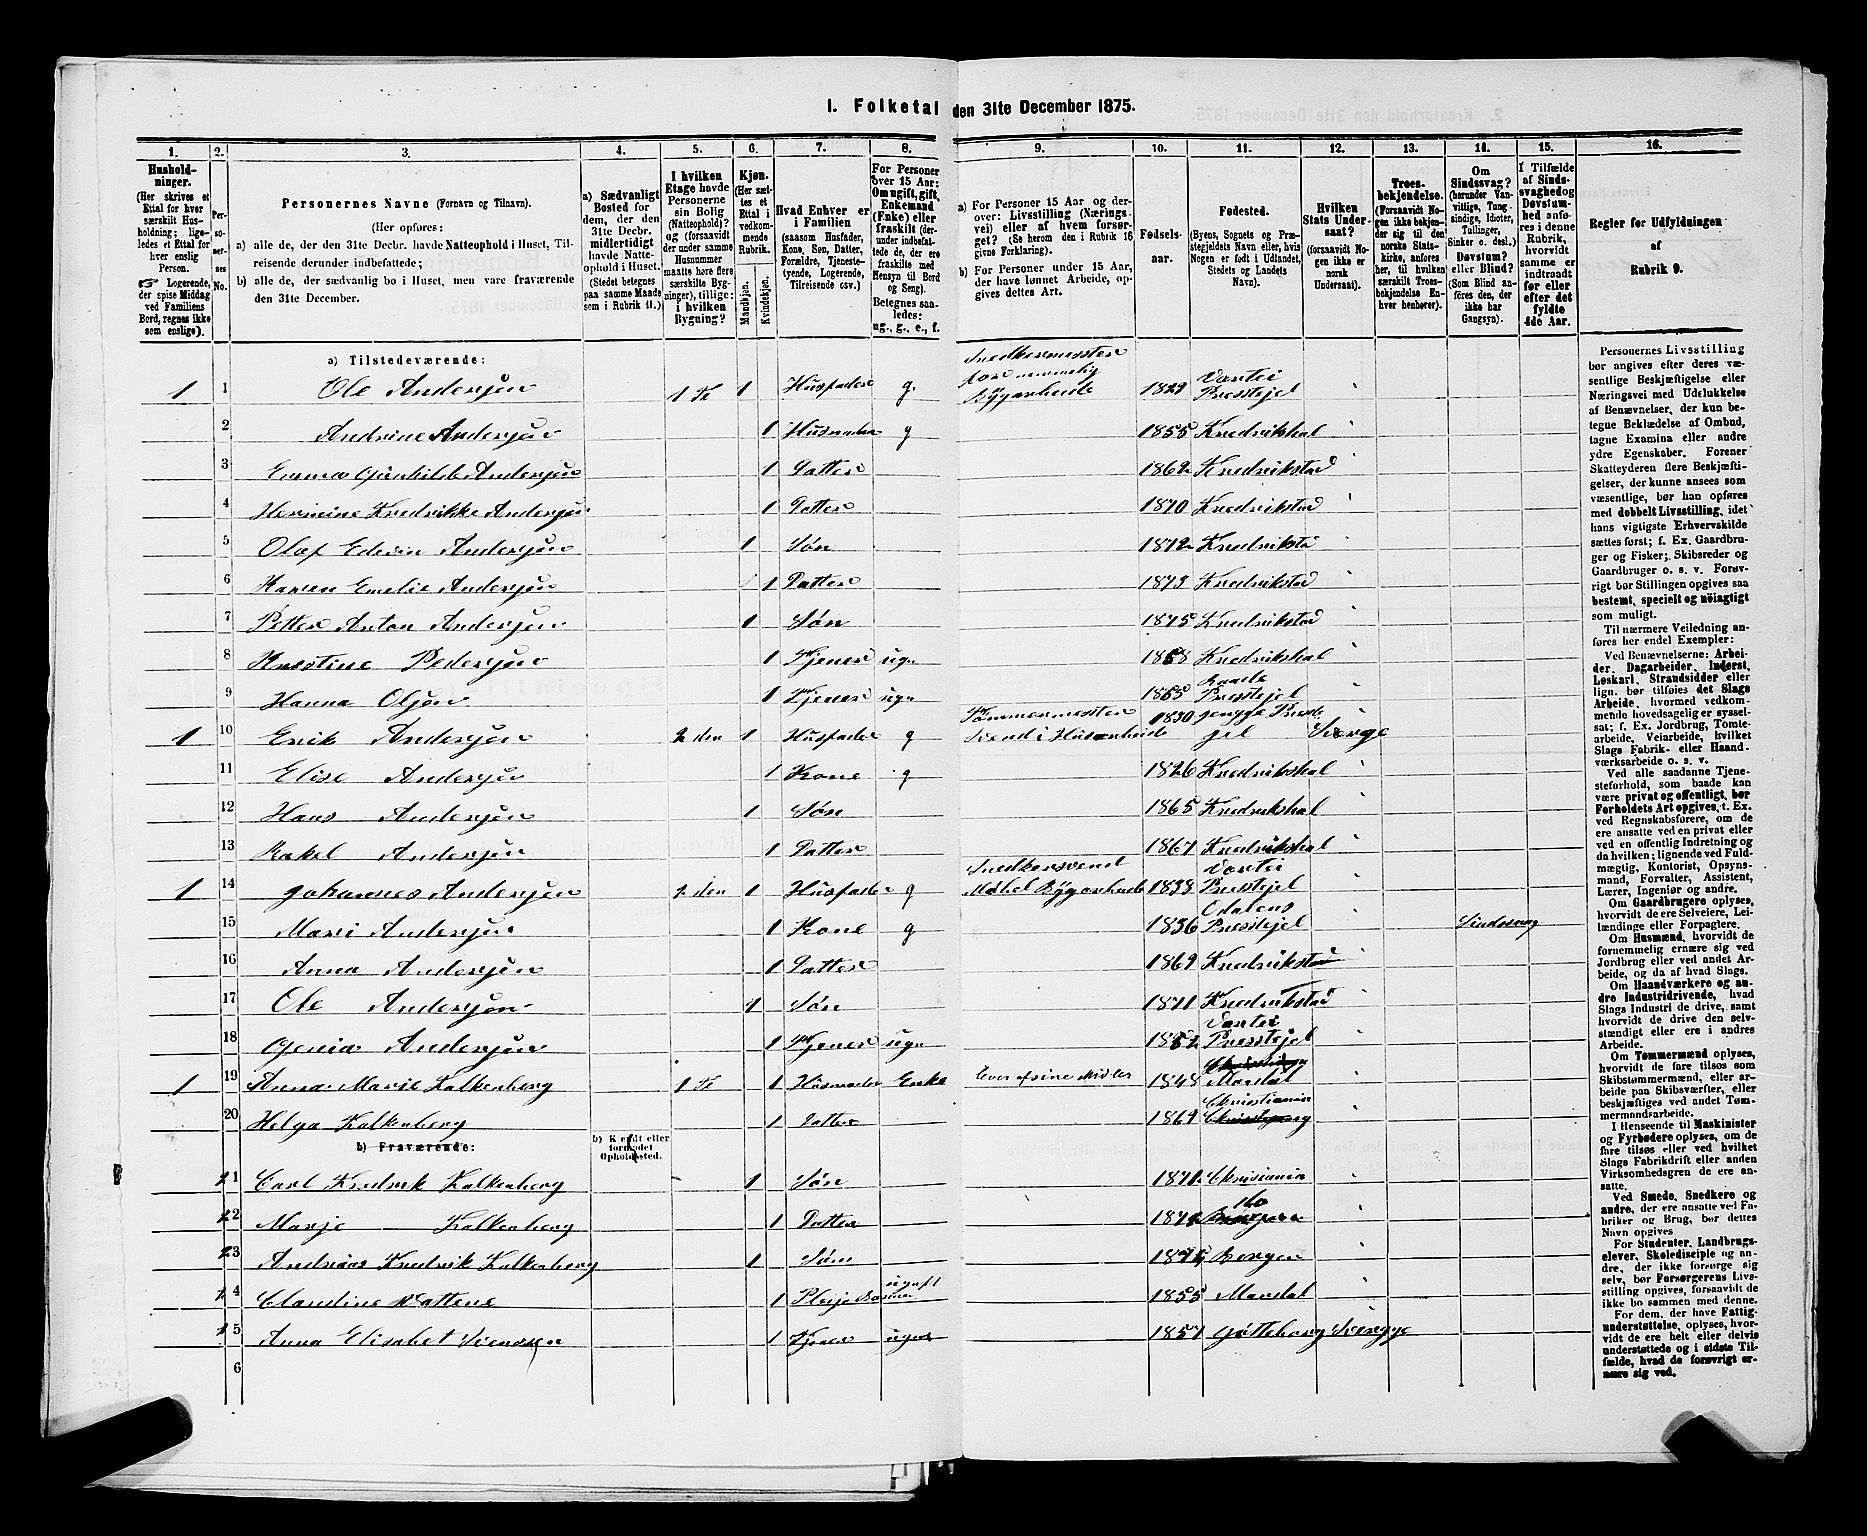 1. Folketal den 31te December 1875.
1. 2. 3. 4. 5. 6. 7. 8. 9. 10. 11. 12. 13. 14. 15. 16.
Husholdninger.
(Her skrives et Ettal for hver særskilt Husholdning; ligeledes et Ettal for hver enslig Person.
☞ Logerende, der spise Middag ved Familiens Bord, regnes ikke som enslige).
Personernes No.
Personernes Navne (Fornavn og Tilnavn).
(Her opføres:
a) alle de, der den 31te Decbr. havde Natteophold i Huset, Tilreisende derunder indbefattede;
b) alle de, der sædvanlig bo i Huset, men vare fraværende den 31te December.
a) Sædvanligt Bosted for dem, der den 31te Decbr. midlertidigt havde Natteophold i Huset. (Stedet betegnes paa samme Maade som i Rubrik 11.)
I hvilken Etage havde Personerne sin Bolig (Natteophold)? og (forsaavidt der under samme Husnummer maatte høre flere særskilte Bygninger), tillige: i hvilken Bygning?
Kjøn.
(Her sættes et Ettal i vedkommende Rubrik.
Mandkjøn.
Kvindekjøn.
Hvad Enhver er i Familien
(saasom Husfader, Kone, Søn, Datter, Forældre, Tjenestetyende, Logerende, Tilreisende osv.)
For Personer over 15 Aar: Om ugift, gift, Enkemand (Enke) eller fraskilt (derunder indbefattede de, der ere fraskilte med Hensyn til Bord og Seng).
Betegnes saaledes: ug., g., e., f.
a) For Personer 15 Aar og derover: Livsstilling (Næringsvei) eller af hvem forsørget? (Se herom den i Rubrik 16 givne Forklaring).
b) For Personer under 15 Aar, der have lønnet Arbeide, opgives dettes Art.
Fødselsaar.
Fødested.
(Byens, Sognets og Præstegjeldets Navn eller, hvis Nogen er født i Udlandet, Stedets og Landets Navn).
Hvilken Stats Undersaat?
(forsaavidt Nogen ikke er norsk Undersaat).
Troesbekjendelse.
(Forsaavidt Nogen ikke bekjender sig til den norske Statskirke, anføres her, til hvilken særskilt Troesbekjendelse Enhver henhører).
Om Sindssvag? (herunder Vanvittige, Tungsindige, Idioter, Tullinger, Sinker o. desl.) Døvstum? eller Blind? (Som Blind anføres den, der ikke har Gangsyn).
I Tilfælde af Sindssvaghed og Døvstumhed anføres i denne Rubrik, hvorvidt samme er indtraadt før eller efter det fyldte 4de Aar.
Regler for Udfyldningen af Rubrik 9.
a) Tilstedeværende:
Snedkermester for nemmelig Bygarheide
1 1 Ole Andersøn 1 Tr 1 Husfader g. 1829 Præstejel
2 Andrine Andersøn 1 Husmoder g 1855 Fredrikshal
3 Emma Gunhilde Andersøn 1 Datter 1862 Fredrikstad
4 Hermine Fredrikke Andersøn 1 Datter 1870 Fredrikstad
5 Olaf Edevin Andersøn 1 Søn 1872 Fredrikstad
6 Karen Emelie Andersøn 1 Datter 1873 Fredrikstad
7 Petter Anton Andersøn 1 Søn 1875 Fredrikstad
8 Kristine Pedersøn 1 Tjener ugu 1858 Fredrikshal
9 Hanna Olsøn 1 Tjener ugu 1855 Raade Præstejel
1 10 Erik Andersøn 2 den 1 Husfader g Tømmermester 1830 Sverge
11 Elise Andersøn 1 Kone g 1826 Fredrikshal
12 Hans Andersøn 1 Søn 1865 Fredrikshal
13 Rakel Andersøn 1 Datter 1867 Fredrikshal
1 14 Johannes Andersøn 2 den 1 Husfader g Snedkersvend 1838 Præstejel
15 Mari Andersøn 1 Kone g 1836 Odalens Præstejel Sindssvag
16 Anna Andersøn 1 Datter 1869 Fredrikstad
17 Ole Andersøn 1 Søn 1871 Fredrikstad
18 Andersøn 1 Tjener ugu 1852 Præstejel
1 19 Anna Marie Falkenberg 1 Tr 1 Husmoder Enke lever af sine Midler 1848 Mandal
20 Helga Falkenberg 1 Datter 1869 Christiania
b) Fraværende:
b) Kjendt eller formodet Opholdssted.
21 Carl Fredrik Falkenberg 1 Søn 1871 Christiania
22 Marje Falkenberg 1 Datter 1872 do
23 Andreas Fredrik Falkenberg 1 Søn 1875 Bergen
24 Claudine Vattene 1 Pleje Barn ugift 1855 Mandal
25 Anna Elisabet Svensen 1 Tjener ugu 1857 Gøtteborg Svergge
6
Personernes Livsstilling bør angives efter deres væsentlige Beskjæftigelse eller Næringsvei med Udelukkelse af Benævnelser, der kun betegne Beklædelse af Ombud, tagne Examina eller andre ydre Egenskaber. Forener Skatteyderen flere Beskjæftigelser, der kunne ansees som væsentlige, bør han opføres med dobbelt Livsstilling, idet hans vigtigste Erhvervskilde sættes først; f. Ex. Gaardbruger og Fisker; Skibsreder og Gaardbruger o. s. v. Forøvrigt bør Stillingen opgives saa bestemt, specielt og nöiagtigt som muligt.
Til nærmere Veiledning anføres her endel Exempler:
Ved Benævnelserne: Arbeider, Dagarbeider, Inderst, Løskarl, Strandsidder eller lign. bør tilføies det Slags Arbeide, hvormed vedkommende hovedsagelig er sysselsat; f. Ex. Jordbrug, Tomtearbeide, Veiarbeide, hvilket Slags Fabrik- eller Haandværksarbeide o. s. v.
Ved alle saadanne Tjenesteforhold, som baade kan være privat og offentligt, bør Forholdets Art opgives, t. Ex. ved Regnskabsførere, om de ere ansatte ved en privat eller ved en offentlig Indretning og da hvilken; lignende ved Fuldmægtig, Kontorist, Opsynsmand, Forvalter, Assistent, Lærer, Ingeniør og andre.
Om Gaardbrugere oplyses, hvorvidt de ere Selveiere, Leilændinge eller Forpagtere.
Om Husmænd, hvorvidt de fornemmelig ernære sig ved Jordbrug eller ved andet Arbeide, og da af hvad Slags.
Om Haandværkere og andre Industridrivende, hvad Slags Industri de drive, samt hvorvidt de drive den selvstændigt eller ere i andres Arbeide.
Om Tømmermænd oplyses, hvorvidt de fare tilsøs som Skibstømmermænd, eller arbeide paa Skibsværfter, eller beskjæftiges ved andet Tømmermandsarbeide.
I Henseende til Maskinister og Fyrbødere oplyses, om de fare tilsøs eller ved hvilket Slags Fabrikdrift eller anden Virksomhedsgren de ere ansatte.
Ved Smede, Snedkere og andre, der ere ansatte ved Fabriker og Brug, bør dettes Navn opgives.
For Studenter, Landbrugselever, Skoledisciple og andre, der ikke forsørge sig selv, bør Forsørgerens Livsstilling opgives, forsaavidt de ikke bo sammen med denne.
For dem, der have Fattigunderstøttelse, oplyses, hvorvidt de ere helt eller delvis understøttede og i sidste Tilfælde, hvad de forøvrigt ernære sig ved.